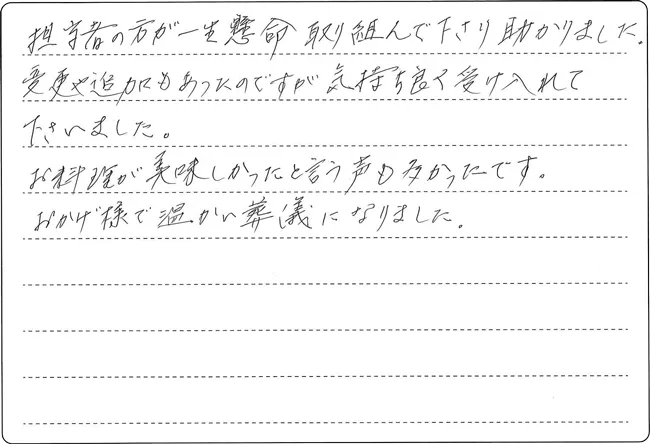 担当者の方が一生懸命取り組んで下さり助かりました。
変更や追加もあったのですが気持ち良く受け入れて
下さいました。
お料理が美味しかったと言う声も多かったです。
おかげ様で温かい葬儀になりました。